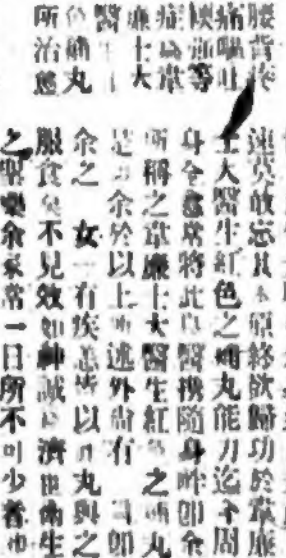 腰背疼
痛嘔吐
等
症為韋
廉士大
醫
色補丸
所治癒
速莫敢忘其本原終欲歸功於韋廉
士大醫生紅色之補丸能力迄今周
身全愈常將此良醫攜隨身畔即余
所稱之韋廉士大醫生紅色之補丸
是也余於以上所述外尚有即
余之女一有疾恙皆以此丸與之
服食無不見效如神誠濟世衛生
之聖藥余家常一日所不可少者也